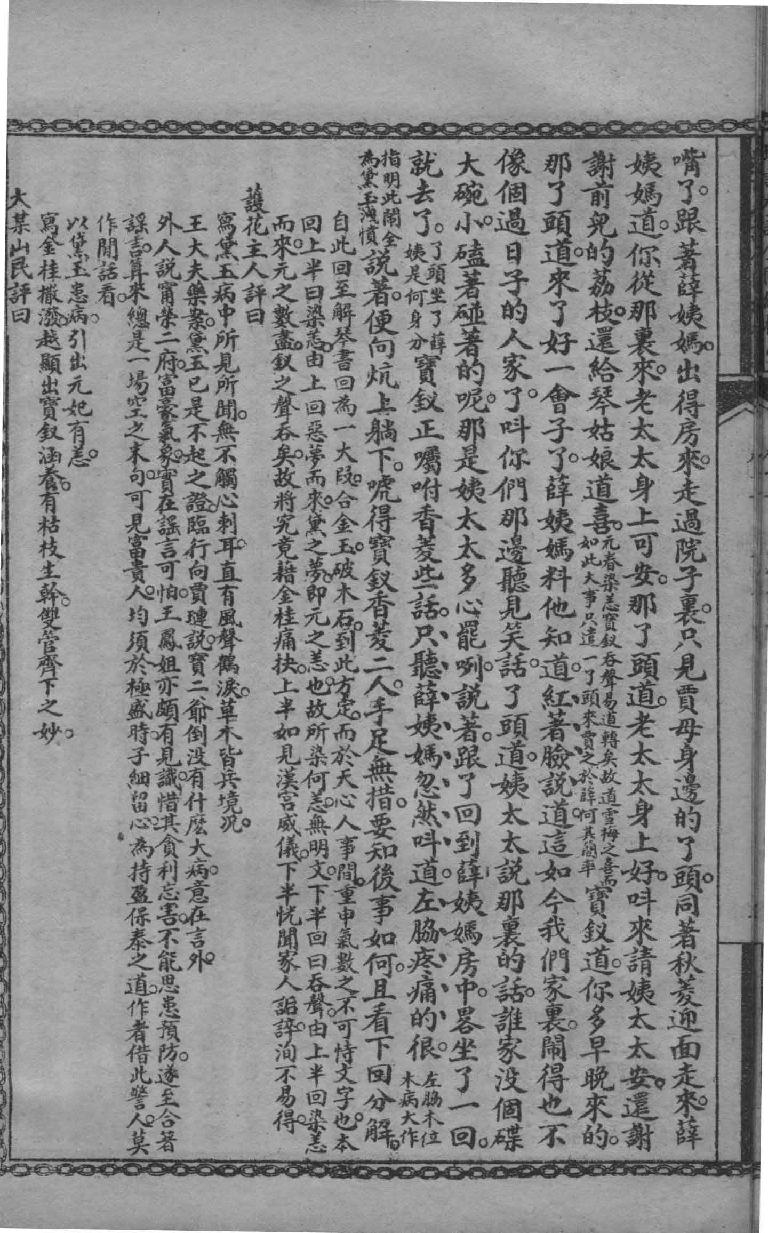 嘴了。跟著薛姨媽。出得房來。走過院子裏。只見賈母身邊的了頭。同著秋菱迎面走來。薛
姨媽道。你從那裏來。老太太身上可安。那了頭道。老太太身上好。叫來請姨太太安。還謝
謝前兒的荔枝。還給琴姑娘道喜。元春染恙寶釵吞聲易道轉矣故道雪梅之喜而如此大事只遣一了頭來賈之於薛何其簡率寶釵道。你多早晚來的。
那了頭道。來了好一會子了。薛姨媽料他知道。紅著臉說道。這如今我們家裏。鬧得也不
像個過日子的人家了。叫你們那邊聽見笑話。了頭道。姨太太說那裏的話。誰家沒個碟
大碗小。磕著碰著的呢。那是姨太太多心罷咧。說著。跟了回到薛姨媽房中。畧坐了一回。
就去了。了頭坐了薛姨是何身分寶釵正囑咐香菱些話。只聽薛姨媽忽然叫道。左脇疼痛的很。左脇木位木病大作
指明此鬧全為黛玉洩憤說著。便向炕上躺下。唬得寶釵香菱二人。手足無措。要知後事如何。且看下回分解。
自此回至解琴書回為一大段。合金玉。破木石。到此方定。而於天心人事間。重申氣數之不可恃文字也。本
回上半曰染恙。由上回惡夢而來。黛之夢。即元之恙也。故所染何恙。無明文。下半回曰吞聲。由上半回染恙
而來。元之數盡。釵之聲吞矣。故將究竟藉金桂痛抉。上半如見漢宮威儀。下半恍聞家人詬誶。洵不易得。
護花主人評曰
寫黛玉病中所見所聞。無不觸心刺耳。直有風聲鶴淚。草木皆兵境況。
王大夫藥案。黛玉已是不起之證。臨行向賈璉說。寶二爺倒沒有什麼大病。意在言外。
外人說甯榮二府。富豪氣象。實在謠言可怕。王鳳姐亦頗有見識。惜其貪利忘害。不能思患預防。遂至合著
謠言。算來總是一場空之末句。可見富貴人。均須於極盛時子細留心。為持盈保泰之道。作者借此警人。莫
作閒話看。
以黛玉患病。引出元妃有恙。
寫金桂撒潑。越顯出寶釵涵養。有枯枝生幹。雙管齊下之妙。
大某山民評曰